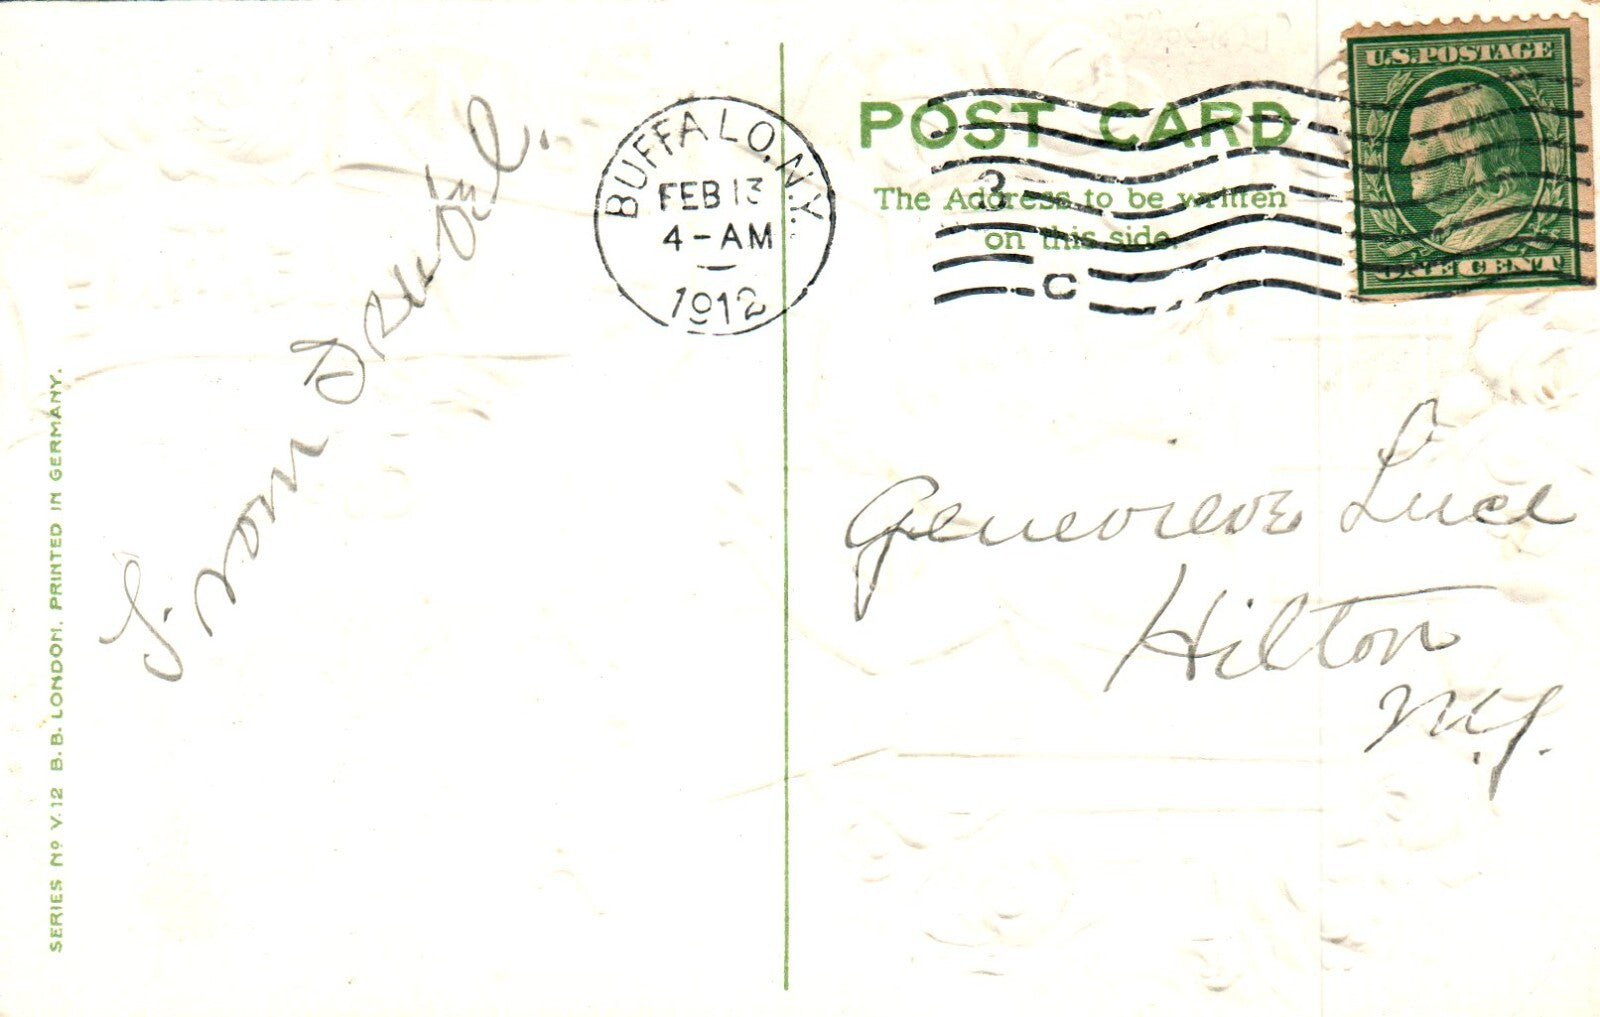 SERIES No V. 12 B.B. LONDON. PRINTED IN GERMANY.
From
BUFFALO, N.Y.
FEB 13
4-AM
1912
POST CARD
The Address to be written
on this side.
3
C
U.S. POSTAGE
ONE CENT
Genevieve Luce
Hilton
N.Y.